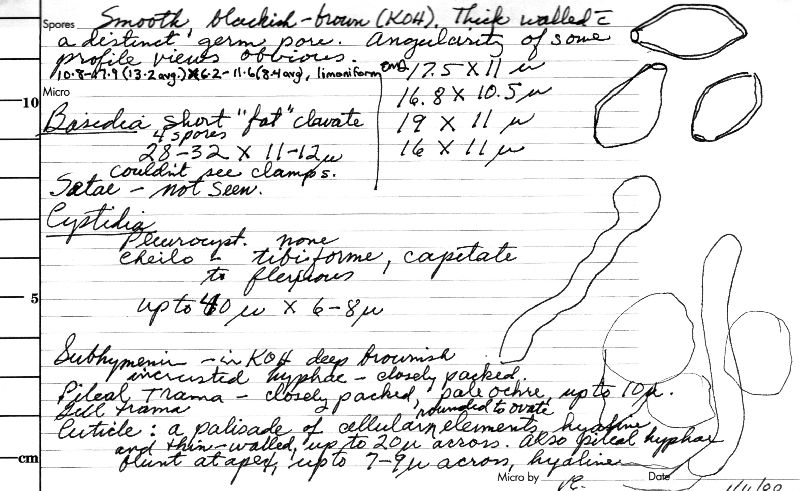 Spores Smooth blackish-brown (KOH). Thick walled c̄
a distinct germ pore. Angularity of some
profile views obvious.
10.8-17.9 (13.2 avg.) X 6.2-11.6 (8.4 avg), limoniform
17.5 X 11 µ
16.8 X 10.5 µ
19 X 11 µ
16 X 11 µ
10
Micro
Basidia short "fat" clavate
4 spores
28-32 X 11-12 µ
couldn't see clamps.
Setae - not seen.
Cystidia
Pleurocyst. none
Cheilo - tibiiforme, capitate
to flexuous
up to 40 µ X 6-8 µ
5
Subhymenium - in KOH deep brownish
incrusted hyphae - closely packed.
Pileal Trama - closely packed, pale ochre, up to 10µ.
Gill trama
rounded to ovate
Cuticle: a palisade of cellular elements, hyaline
and thin-walled, up to 20µ across. Also pileal hyphae
blunt at apex, up to 7-9µ across, hyaline
cm
Micro by
Date